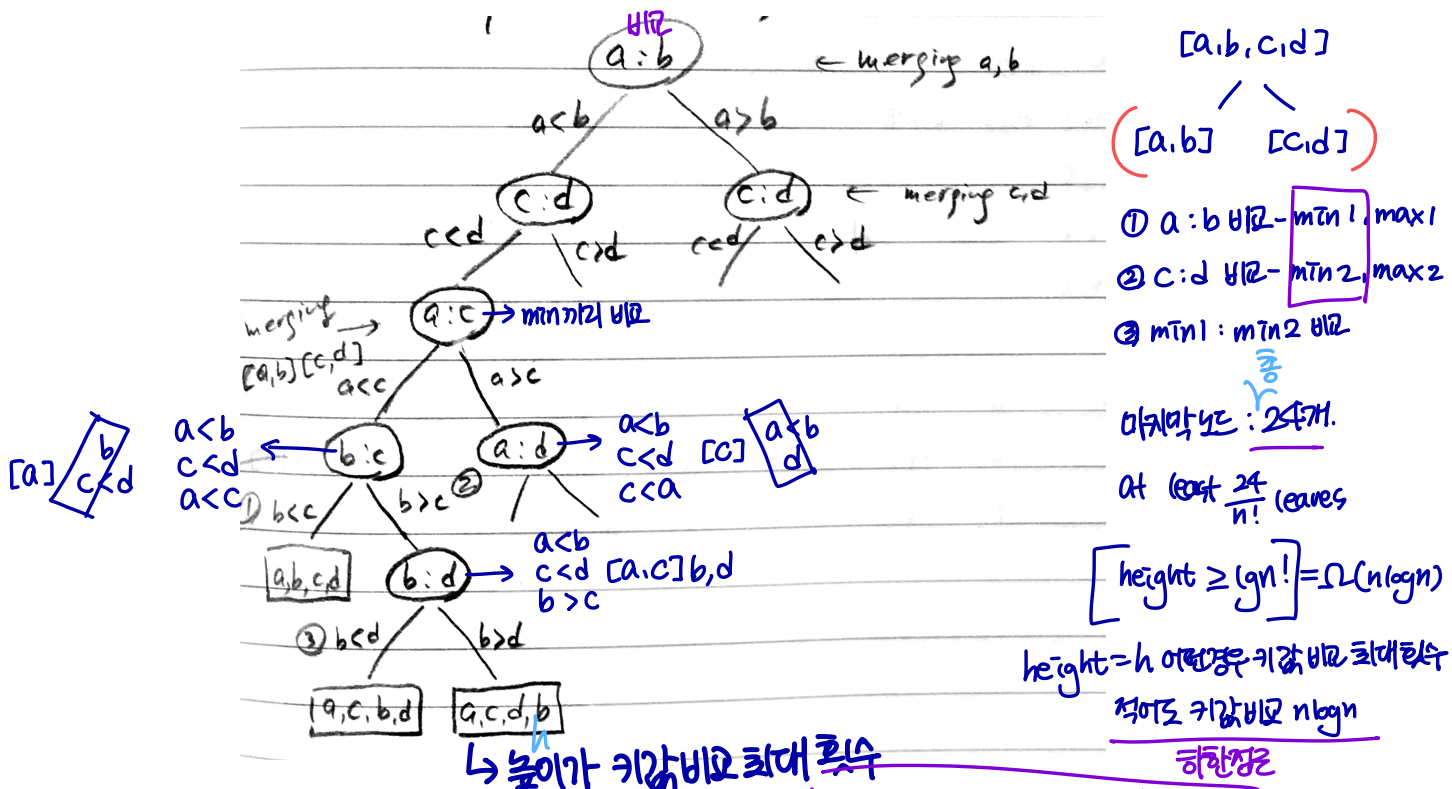 비교
a : b
← merging a, b
a<b
a>b
c : d
c : d
← merging c,d
c<d
c>d
c<d
c>d
merging →
[a,b][c,d]
a : c → min끼리 비교
a<c
a>c
[a] b c<d
a<b
c<d
a<c
b : c
② a : d
a<b
c<d
c<a
[c] a<b d
① b<c
b>c
a,b,c,d
b : d
a<b
c<d [a,c] b,d
b>c
③ b<d
b>d
a,c,b,d
a,c,d,b
h
↳ 높이가 키값 비교 최대 횟수
[a,b,c,d]
([a,b] [c,d])
① a : b 비교 - min1, max1
② c : d 비교 - min2, max2
③ min1 : min2 비교
총
마지막 노드 : 24개.
at least 24/n! leaves
[height ≥ lgn!] = Ω(nlogn)
height = h 어떤경우 키값 비교 최대 횟수
적어도 키값비교 nlogn
하한정른